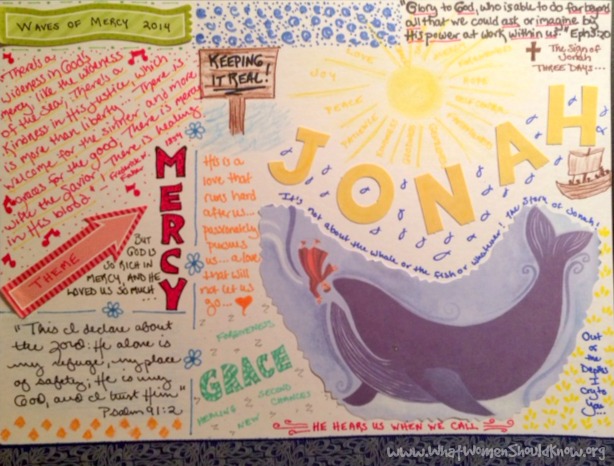 WAVES OF MERCY 2014
"Glory to God, who is able to do far beyond
all that we could ask or imagine by
His power at work within us." Eph 3:20
The Sign of
Jonah
THREE DAYS...
"There's a
wideness in God's
mercy like the wideness
of the sea; There's a
Kindness in His justice which
is more than liberty. There is
welcome for the sinner and more
graces for the good; There is mercy
with the Savior; There is healing
in His blood"
Frederick
1854
KEEPING
IT REAL!
LOVE
JOY
PEACE
PATIENCE
SELF CONTROL
JONAH
It's not about the whale or the fish or whatever, the story of Jonah!
MERCY
THEME
BUT
GOD IS
SO RICH IN
MERCY, AND HE
LOVED US SO MUCH
...
His is a
love that
runs hard
after us...
passionately
pursues
us... a love
that will
not let us
go...
"This I declare about
the Lord: He alone is
my refuge, my place
of safety; He is my
God, and I trust Him"
Psalm 91:2
FORGIVENESS
GRACE
HEALING
SECOND
CHANCES
NEW
HE HEARS US WHEN WE CALL
Out of
the Depths
I Cry to
You!!
www.WhatWomenShouldKnow.org